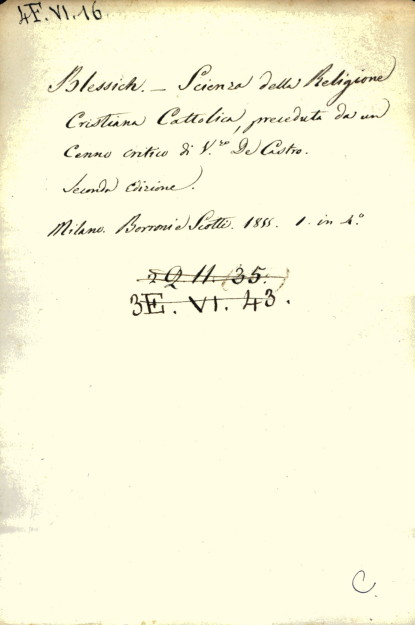 4F. VI. 16
Blessich. — Scienza della Religione
Cristiana Cattolica, preceduta da un
Cenno critico di V.zo De Castro.
Seconda edizione.
Milano. Borroni e Scotti. 1855. 1. in 4.o
2 Q 11. 35.
3E. VI. 43.
C